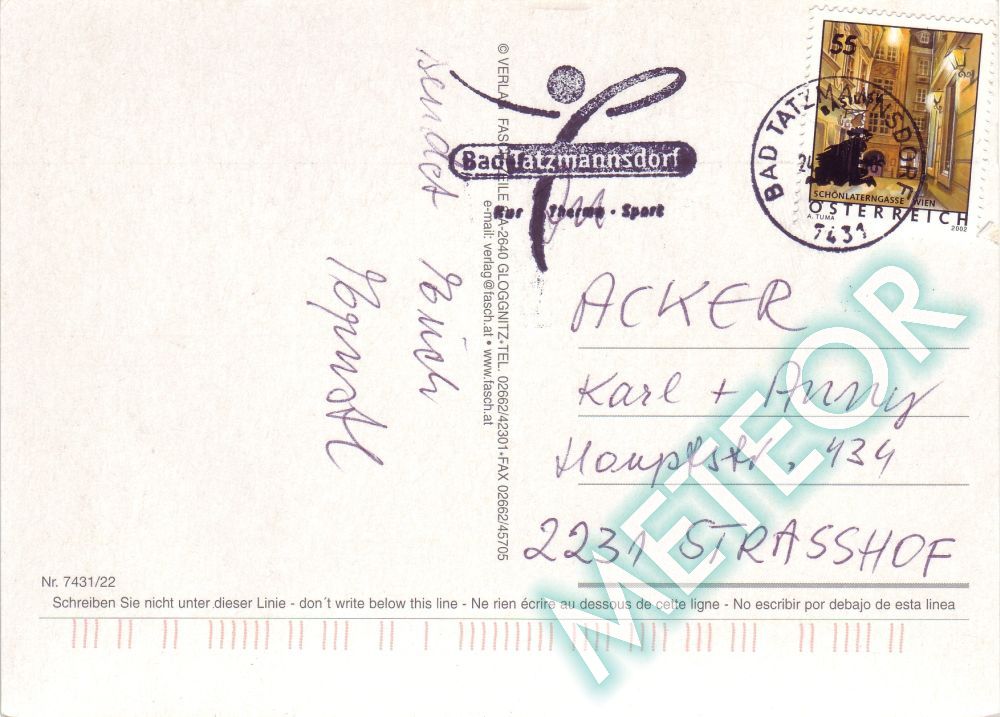 sendet Euch
© VERLAG FASCH, ZEILE 8, A-2640 GLOGGNITZ•TEL. 02662/42301•FAX 02662/45705
e-mail: verlag@fasch.at • www.fasch.at
Bad Tatzmannsdorf
Kur · Therme · Sport
BAD TATZMANNSDORF
7431
55
SCHÖNLATERNGASSE WIEN
ÖSTERREICH
A. TUMA
2002
ACKER
Karl + Anny
Hauptstr. 434
2231 STRASSHOF
METEOR
Nr. 7431/22
Schreiben Sie nicht unter dieser Linie - don´t write below this line - Ne rien écrire au dessous de cette ligne - No escribir por debajo de esta linea